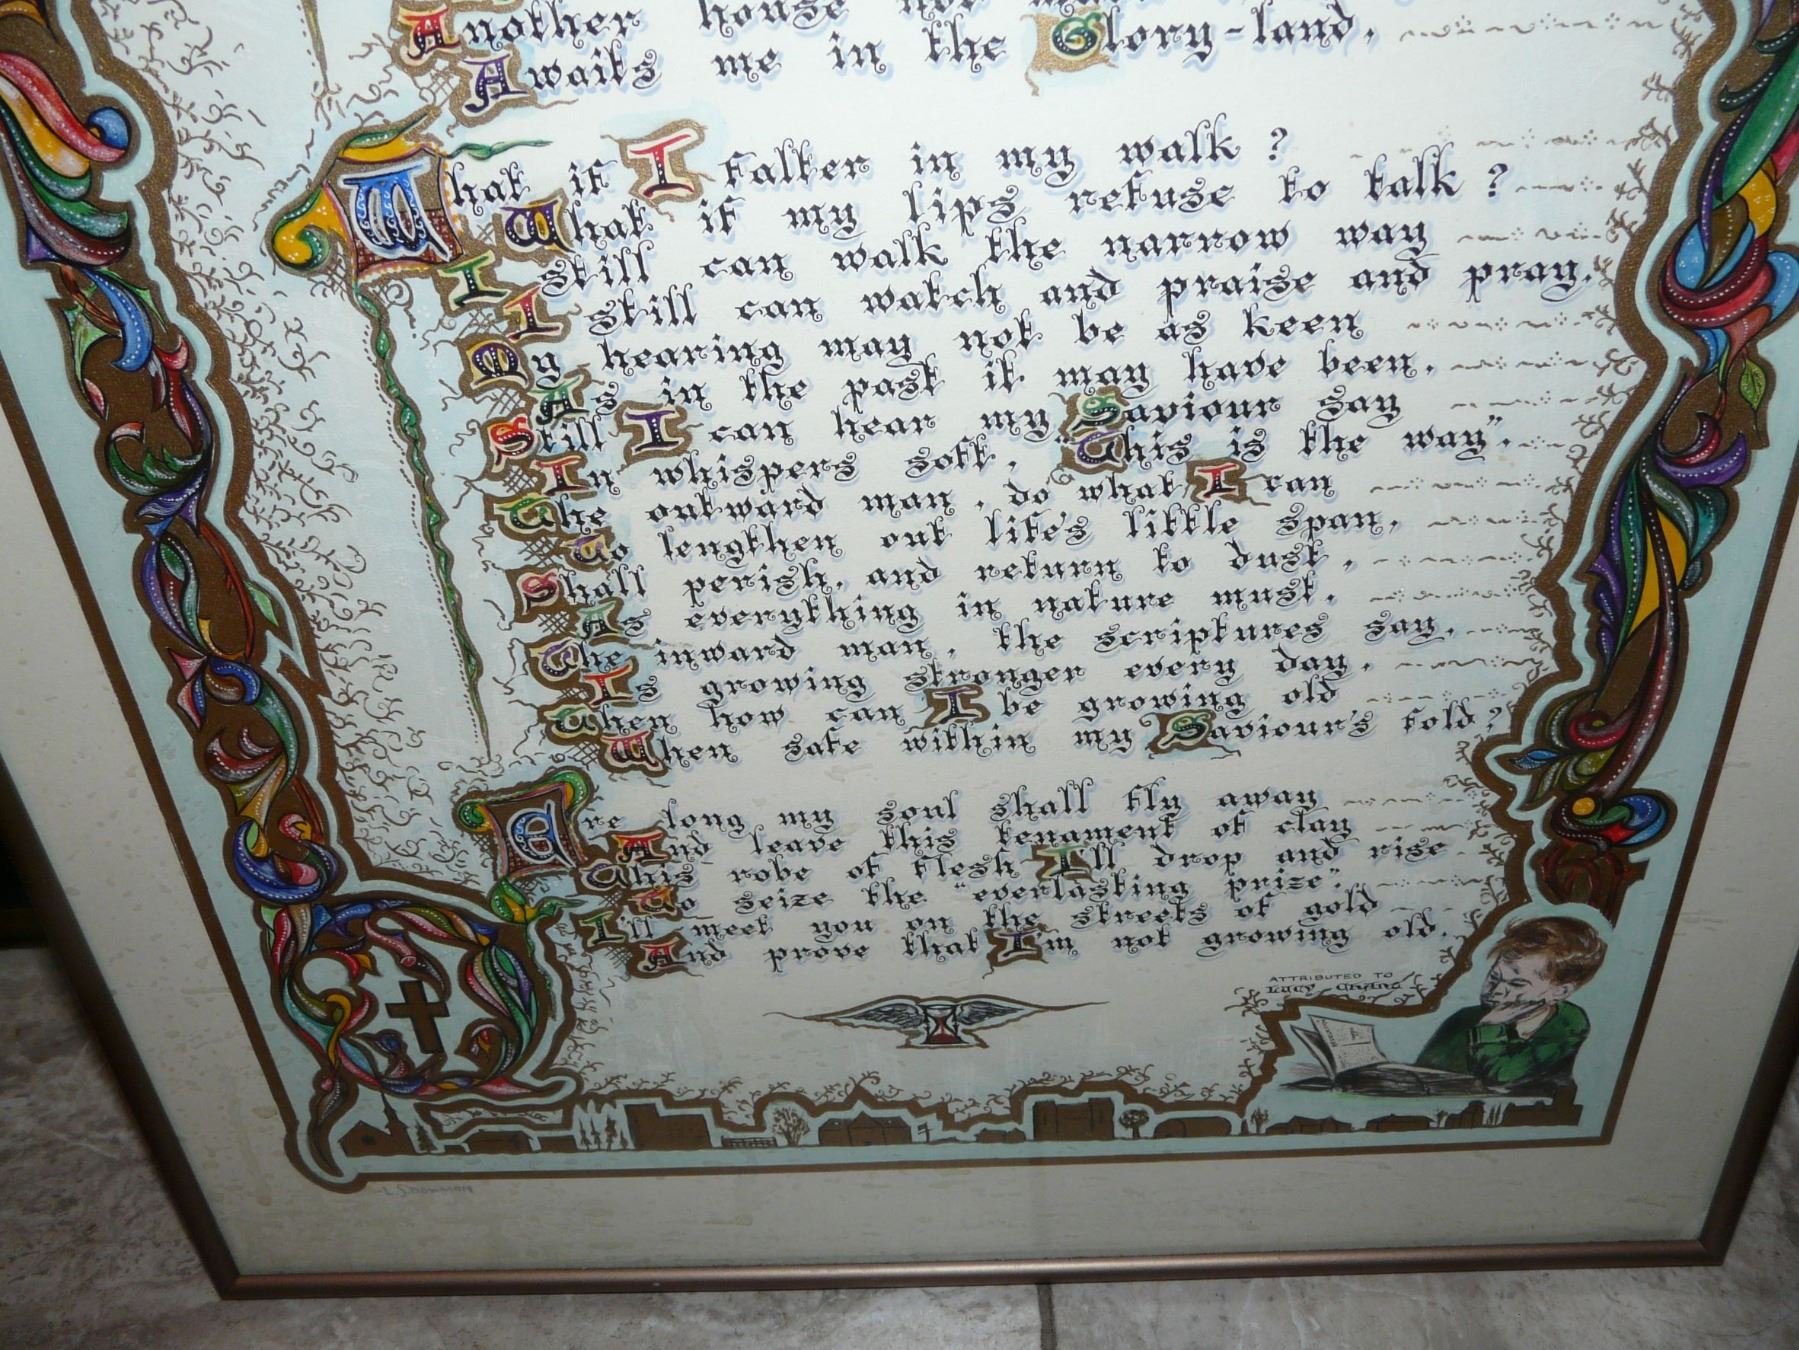 Another house not
Awaits me in the Glory-land.
What if I falter in my walk?
What if my lips refuse to talk?
I still can walk the narrow way
I still can watch and praise and pray.
My hearing may not be as keen
As in the past it may have been.
Still I can hear my Saviour say
In whispers soft, "This is the way".
The outward man, do what I can
To lengthen out life's little span,
Shall perish, and return to dust,
As everything in nature must.
The inward man, the scriptures say,
Is growing stronger every day.
Then how can I be growing old
When safe within my Saviour's fold?
Ere long my soul shall fly away
And leave this tenament of clay
This robe of flesh I'll drop and rise
To seize the "everlasting prize".
I'll meet you on the streets of gold
And prove that I'm not growing old.
ATTRIBUTED TO
LUCY
L. S. BOWMAN